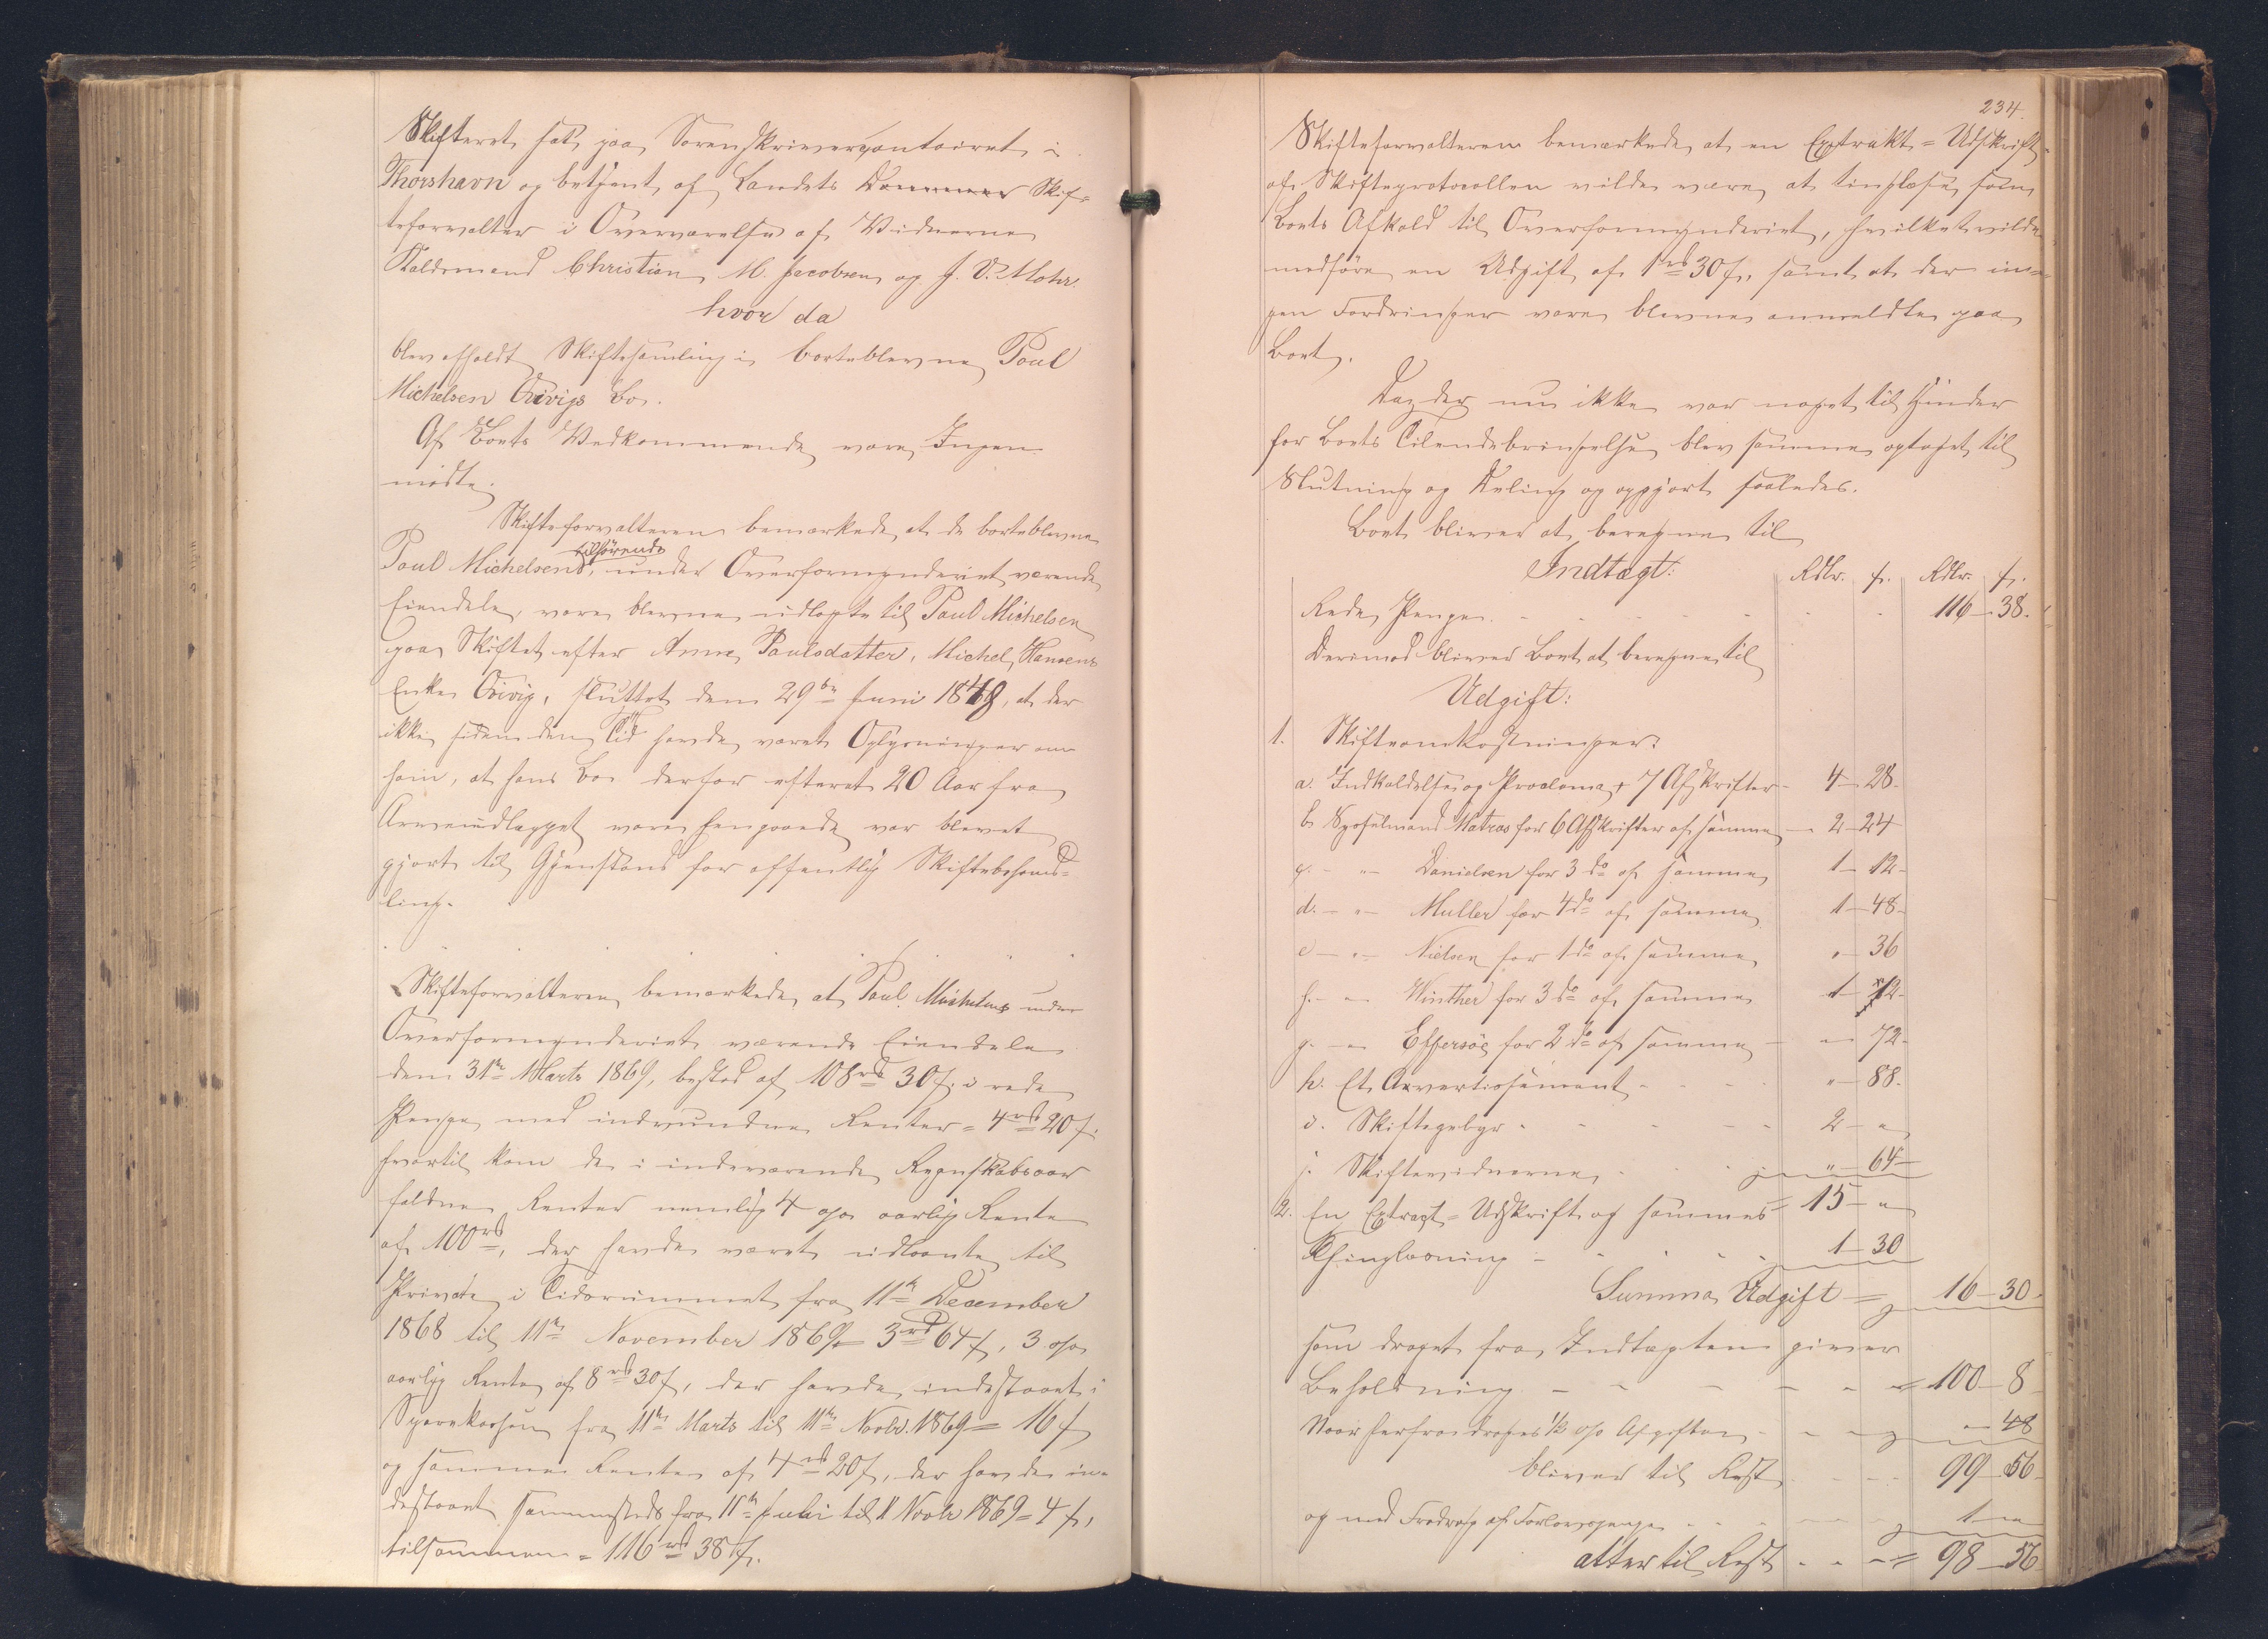 Skifteret sat paa Sorenskrivercontoiret i
Thorshavn og betjent af Landets Skif-
teforvalter i Overværelse af Vidnerne
Kaldsmand Christian M. Jacobsen og J. D. Mohr.
hvor da
blev afholdt Skiftesamling i bortebleven Poul
Michelsen Öravigs Bo.
Af Boets Vedkommende vare Ingen
mødte.
Skifteforvalteren bemærkede, at de borteblevne
tilhörende
Poul Michelsens, under Overformynderiet værende
Eiendele, vare blevne udlagte til Poul Michelsen
paa Skiftet efter Anne Poulsdatter, Michel Hansens
Enke Öravig, sluttet den 29de Juni 1848, at der
ikke siden den Tid havde været Oplysninger om
ham, at hans Bo derfor efterat 20 Aar fra
Arveudlægget vare hengaaede var blevet
gjort til Gjenstand for offentlig Skiftebehand-
ling.
Skifteforvalteren bemærkede, at Poul Michelsens under
Overformynderiet værende Eiendele
den 31te Marts 1869, bestod af 108 rd 30 s. i rede
Penge med indvundne Renter = 4 rd 20 s.
hvortil kom de i indeværende Regnskabsaar
faldne Renter nemlig 4 o/o aarlig Rente
af 100 rd, der havde været udlaante til
Private i Tidsrummet fra 11te December
1868 til 11te November 1869 = 3 rd 64 s, 3 o/o
aarlig Rente af 8 rd 30 s, der havde indestaaet i
Sparekassen fra 11te Marts til 11te Novbr. 1869 = 16 s
og samme Rente af 4 rd 20 s, der havde in-
destaaet sammesteds fra 11te Juli til 11 Novbr 1869 = 4 s,
tilsammen = 116 rd 38 s.
234.
Skifteforvalteren bemærkede, at en Extrakt-Udskrift
af Skifteprotocollen vilde være at tinglæse som
Boets Afkald til Overformynderiet, hvilket vilde
medføre en Udgift af 1 rd 30 s, samt at der in-
gen Fordringer vare blevne anmeldte paa
Boet.
Da der nu ikke var noget til Hinder
for Boets Tilendebringelse blev samme optaget til
Slutning og Deling og opgjort saaledes.
Boet bliver at beregne til
Indtægt: Rdlr. s. Rdlr. s.
Rede Penge 116 - 38.
Derimod bliver Boet at beregne til
Udgift:
1. Skifteomkostninger:
a. Indkaldelse og Proclama + 7 Afskrifter 4 - 28.
b. Sysselmand Matras for 6 Afskrifter af samme 2 - 24
c. - " - Danielsen for 3 do af samme 1 - 12
d. - " - Muller for 4 do af samme 1 - 48
e - " - Nielsen for 1 do af samme " - 36
f. - " - Winther for 3 do af samme 1 - 12
g. - " - Effersöe for 2 do af samme " - 72
h. Et Avertissement " - 88.
i. Skiftegebyr 2 - "
j. Skiftevidnerne " - 64
2. En Extract-Udskrift og sammes = 15 - "
Thinglæsning 1 - 30
Summa Udgift = 16 - 30
som draget fra Indtægten giver
Beholdning = 100 - 8
Naar herfra drages 1/2 o/o Afgiften " - 48
bliver til Rest 99 - 56
og med Fradrag af Forlovspenge 1 - "
atter til Rest = 98 - 56